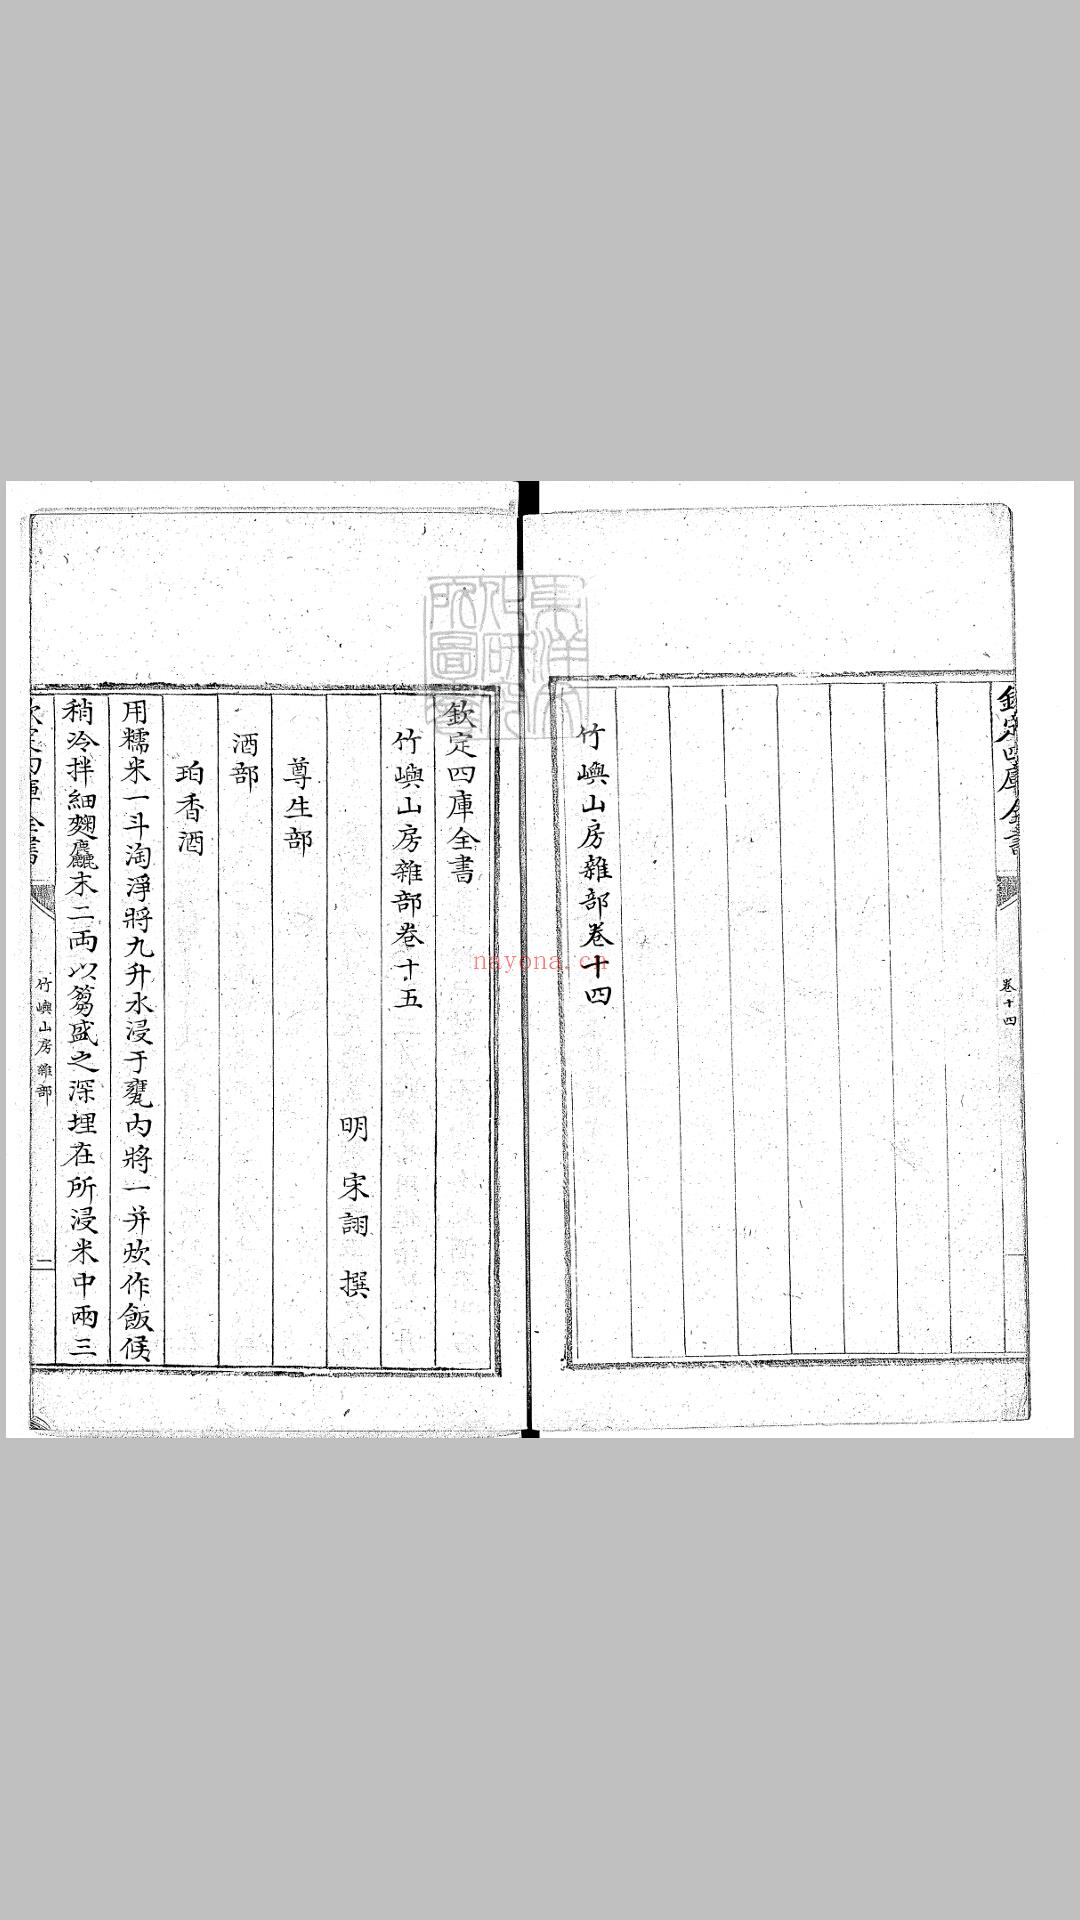 欽定四庫全書
卷十四
竹嶼山房雜部卷十四
欽定四庫全書
竹嶼山房雜部卷十五
明 宋詡 撰
尊生部
酒部
珀香酒
用糯米一斗淘淨將九升水浸于甕內將一并炊作飯候
稍冷拌細麴麤末二兩以篘盛之深埋在所浸米中兩三
竹嶼山房雜部
一
nayona.cn